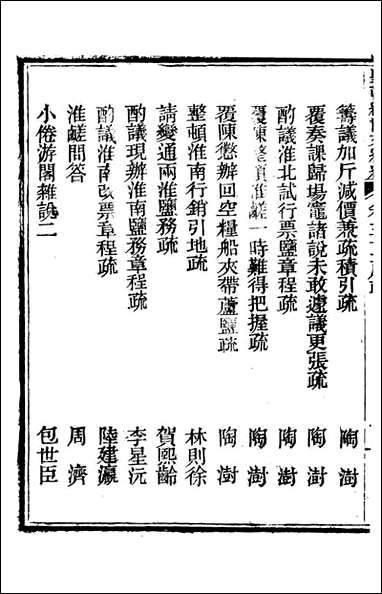 籌議加斤減價兼疏積引疏 陶澍
覆奏課歸場竈諸說未敢遽議更張疏 陶澍
酌議淮北試行票鹽章程疏 陶澍
覆陳整頓淮鹺一時難得把握疏 陶澍
覆陳懲辦回空糧船夾帶蘆鹽疏 陶澍
整頓淮南行銷引地疏 林則徐
請變通兩淮鹽務疏 賀熙齡
酌議現辦淮南鹽務章程疏 李星沅
酌議淮南改票章程疏 陸建瀛
淮鹺問答 周濟
小倦游閣雜說二 包世臣